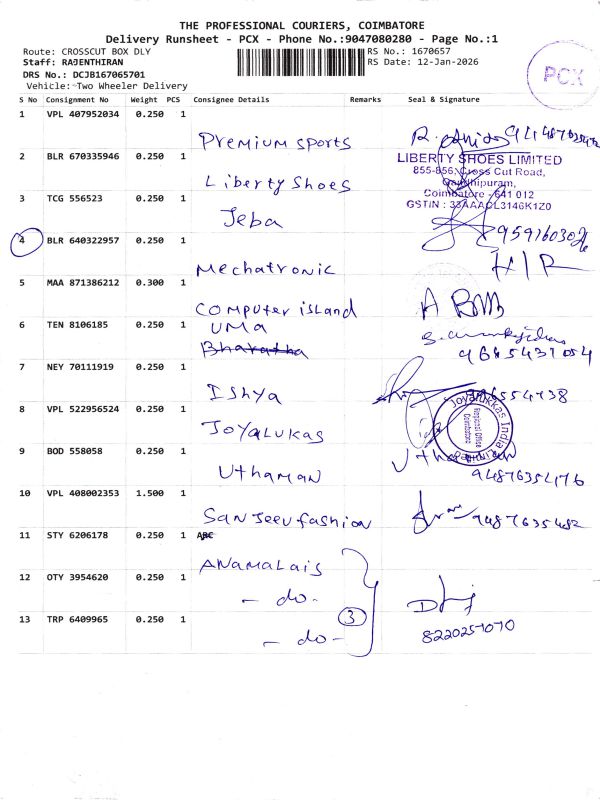 THE PROFESSIONAL COURIERS, COIMBATORE
Delivery Runsheet - PCX - Phone No.:9047080280 - Page No.:1
Route: CROSSCUT BOX DLY
RS No.: 1670657
Staff: RAJENTHIRAN
RS Date: 12-Jan-2026
DRS No.: DCJB167065701
Vehicle: Two Wheeler Delivery
PCX
S No Consignment No Weight PCS Consignee Details Remarks Seal & Signature
1 VPL 407952034 0.250 1
Premium sports
2 BLR 670335946 0.250 1
LIBERTY SHOES LIMITED
855-856, Cross Cut Road,
Liberty Shoes
Gandhipuram,
3 TCG 556523 0.250 1
Coimbatore - 641 012
GSTIN : 33AAACL3146K1Z0
Jeba
4 BLR 640322957 0.250 1
Mechatronic
5 MAA 871386212 0.300 1
Computer island
6 TEN 8106185 0.250 1
UMA
Bharatha
9685437054
7 NEY 70111919 0.250 1
Ishya
8 VPL 522956524 0.250 1
Joyalukkas India
Regional Office
Coimbatore
JOYALUKAS
9 BOD 558058 0.250 1
Uthaman
10 VPL 408002353 1.500 1
Sanjeev fashion
11 STY 6206178 0.250 1
ANAMALAIS
12 OTY 3954620 0.250 1
- do -
3
13 TRP 6409965 0.250 1
8220257070
- do -